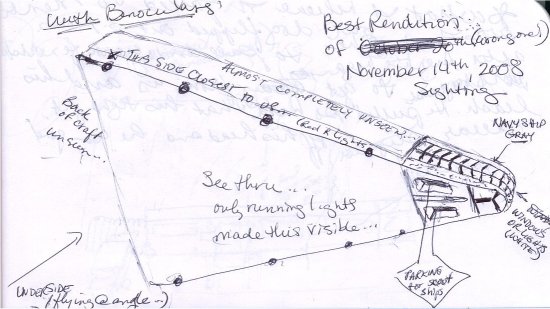 With Binoculars!
Best Rendition...
of October 20th (wrong one!)
November 14th, 2008
Sighting
Almost completely unseen...
x This side closest to us...
(Red lights
Back
of craft
unseen...
Navy ship
gray
See thru...
only running lights
made this visible...
Windows
or lights
(white)
Parking
for scout
ships
Underside
(flying @ angle...)